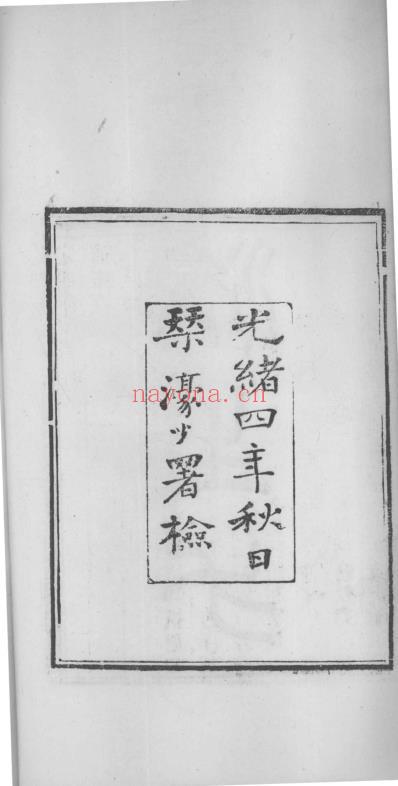 光緒四年秋日
濠署檢
nayona.cn